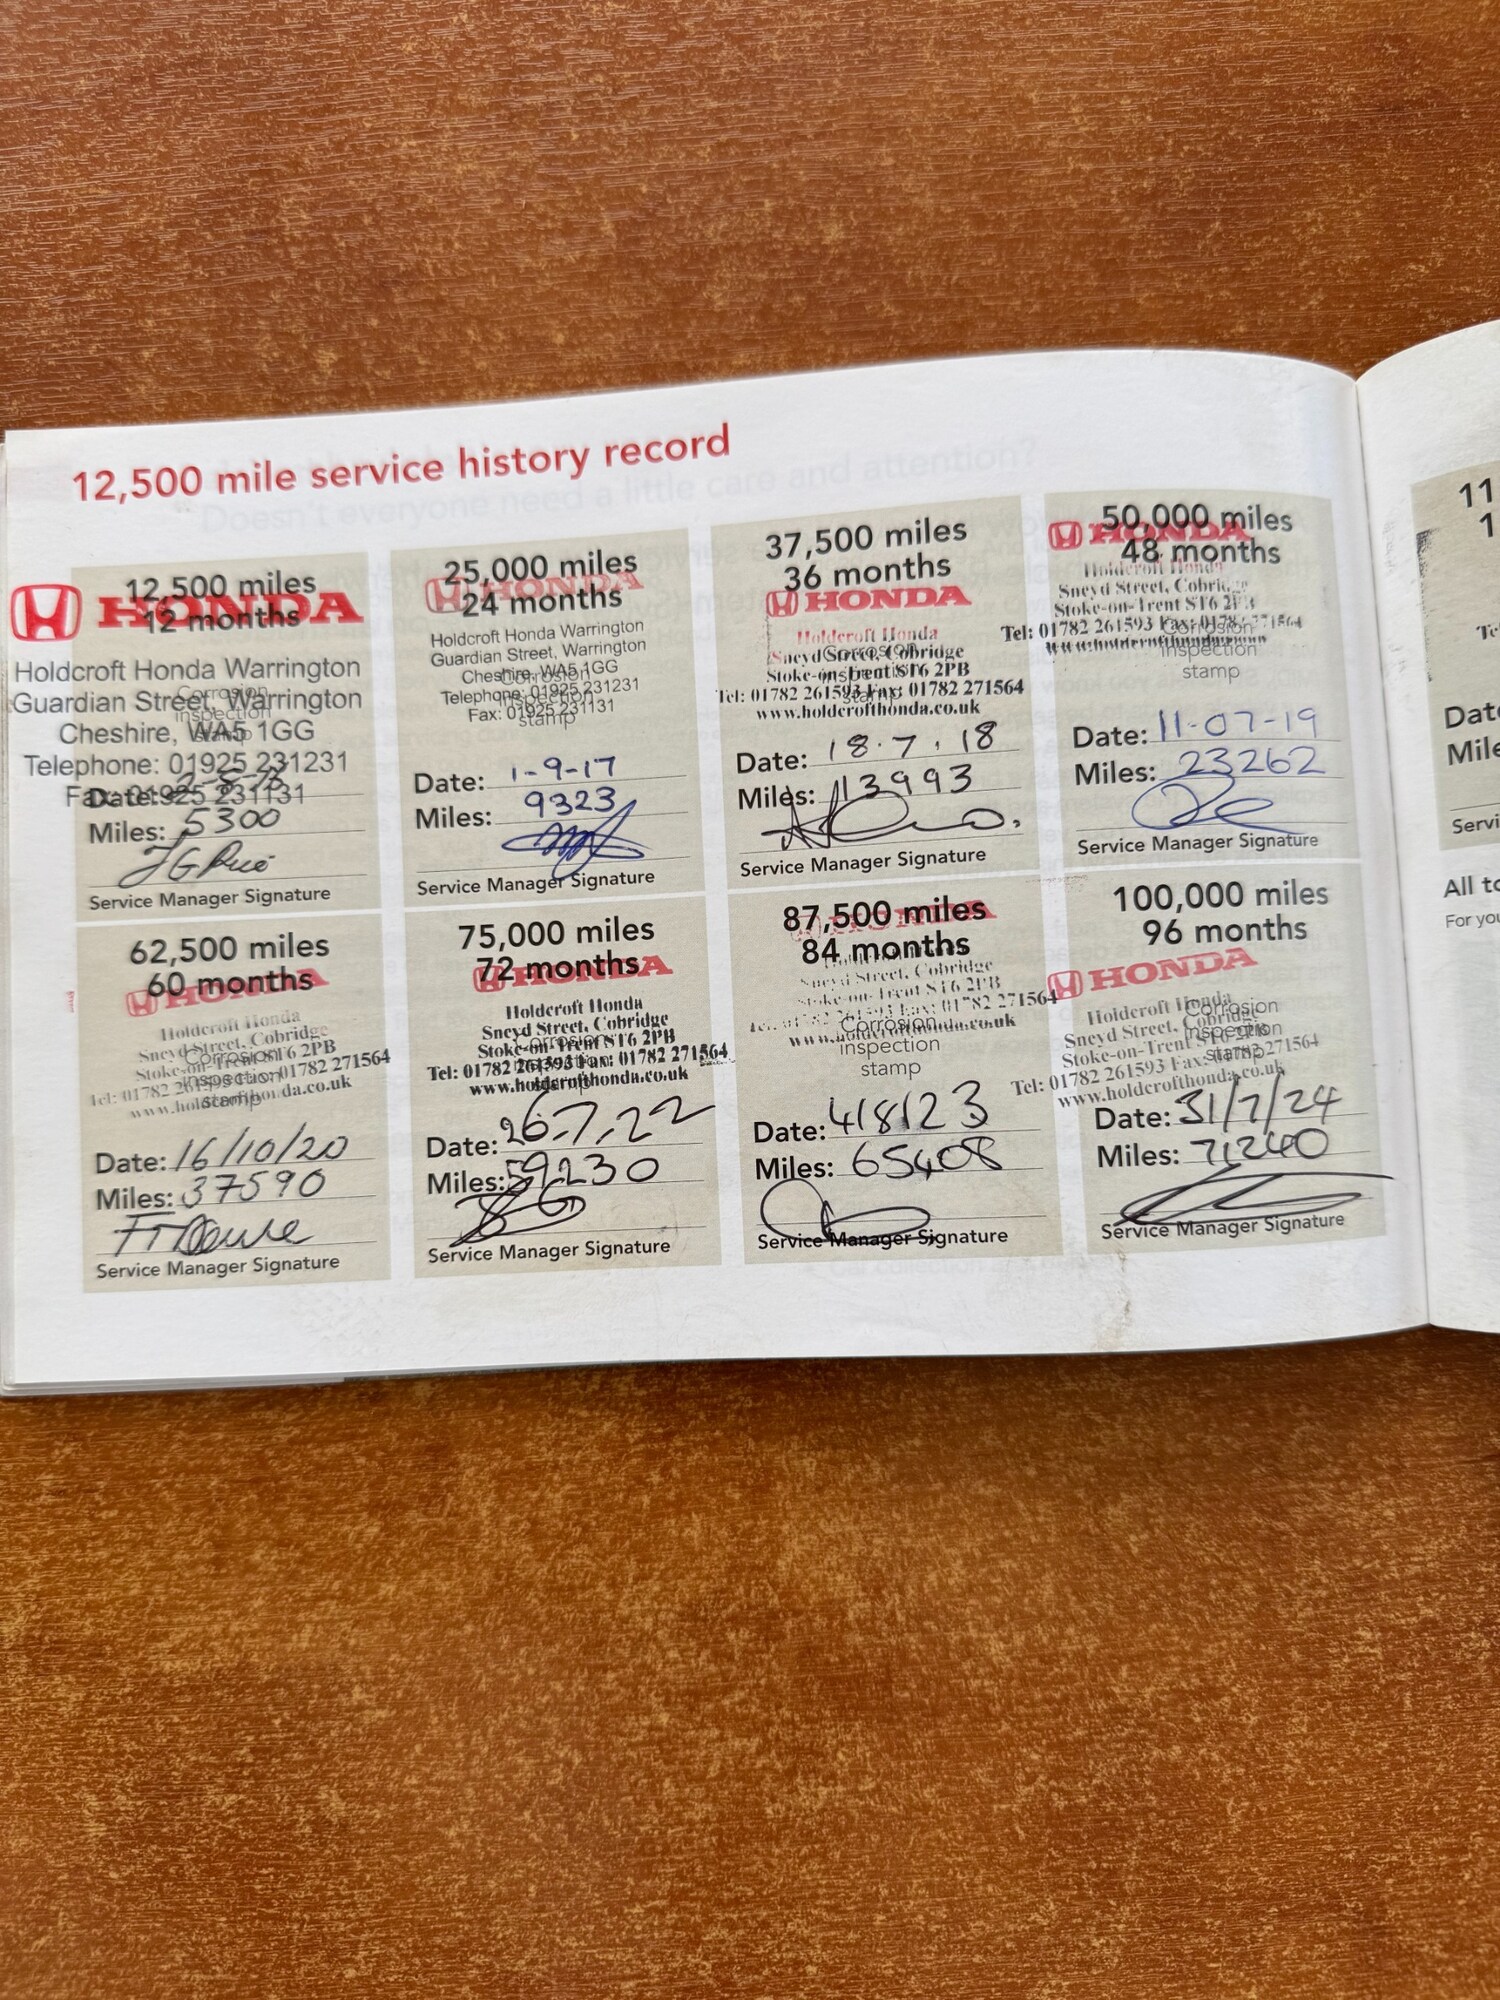 12,500 mile service history record
12,500 miles
12 months
HONDA
Holdcroft Honda Warrington
Guardian Street, Warrington
Cheshire, WA5 1GG
Telephone: 01925 231231
Fax: 01925 231131
Corrosion
inspection
stamp
Date:
Miles: 5300
Service Manager Signature
25,000 miles
24 months
HONDA
Holdcroft Honda Warrington
Guardian Street, Warrington
Cheshire, WA5 1GG
Telephone: 01925 231231
Fax: 01925 231131
Corrosion
inspection
stamp
Date: 1-9-17
Miles: 9323
Service Manager Signature
37,500 miles
36 months
HONDA
Holdcroft Honda
Sneyd Street, Cobridge
Stoke-on-Trent ST6 2PB
Tel: 01782 261593 Fax: 01782 271564
www.holdcrofthonda.co.uk
Corrosion
inspection
stamp
Date: 18.7.18
Miles: 13993
Service Manager Signature
50,000 miles
48 months
HONDA
Holdcroft Honda
Sneyd Street, Cobridge
Stoke-on-Trent ST6 2PB
Tel: 01782 261593 Fax: 01782 271564
www.holdcrofthonda
Corrosion
inspection
stamp
Date: 11-07-19
Miles: 23262
Service Manager Signature
62,500 miles
60 months
HONDA
Holdcroft Honda
Sneyd Street, Cobridge
Stoke-on-Trent ST6 2PB
Tel: 01782 261593 Fax: 01782 271564
www.holdcrofthonda.co.uk
Corrosion
inspection
stamp
Date: 16/10/20
Miles: 37590
Service Manager Signature
75,000 miles
72 months
HONDA
Holdcroft Honda
Sneyd Street, Cobridge
Stoke-on-Trent ST6 2PB
Tel: 01782 261593 Fax: 01782 271564
www.holdcrofthonda.co.uk
Corrosion
inspection
stamp
Date: 26.7.22
Miles: 59230
Service Manager Signature
87,500 miles
84 months
HONDA
Sneyd Street, Cobridge
Stoke-on-Trent ST6 2PB
Tel: 01782 261593 Fax: 01782 271564
www.holdcrofthonda.co.uk
Corrosion
inspection
stamp
Date: 4/8/23
Miles: 65408
Service Manager Signature
100,000 miles
96 months
HONDA
Holdcroft Honda
Sneyd Street, Cobridge
Stoke-on-Trent ST6 2PB
Tel: 01782 261593 Fax: 01782 271564
www.holdcrofthonda.co.uk
Corrosion
inspection
stamp
Date: 31/7/24
Miles: 71240
Service Manager Signature
11
1
Te
Date
Mile
Servi
All to
For you